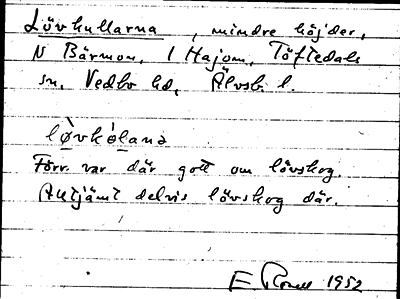 Lövkullarna, mindre höjder,
N Bärmon, 1 Hajom, Töftedals
sn, Vedbo hd, Älvsb. l.
lø̀vkø̀lana
Förr var där gott om lövskog.
Alltjämt delvis lövskog där.
1952